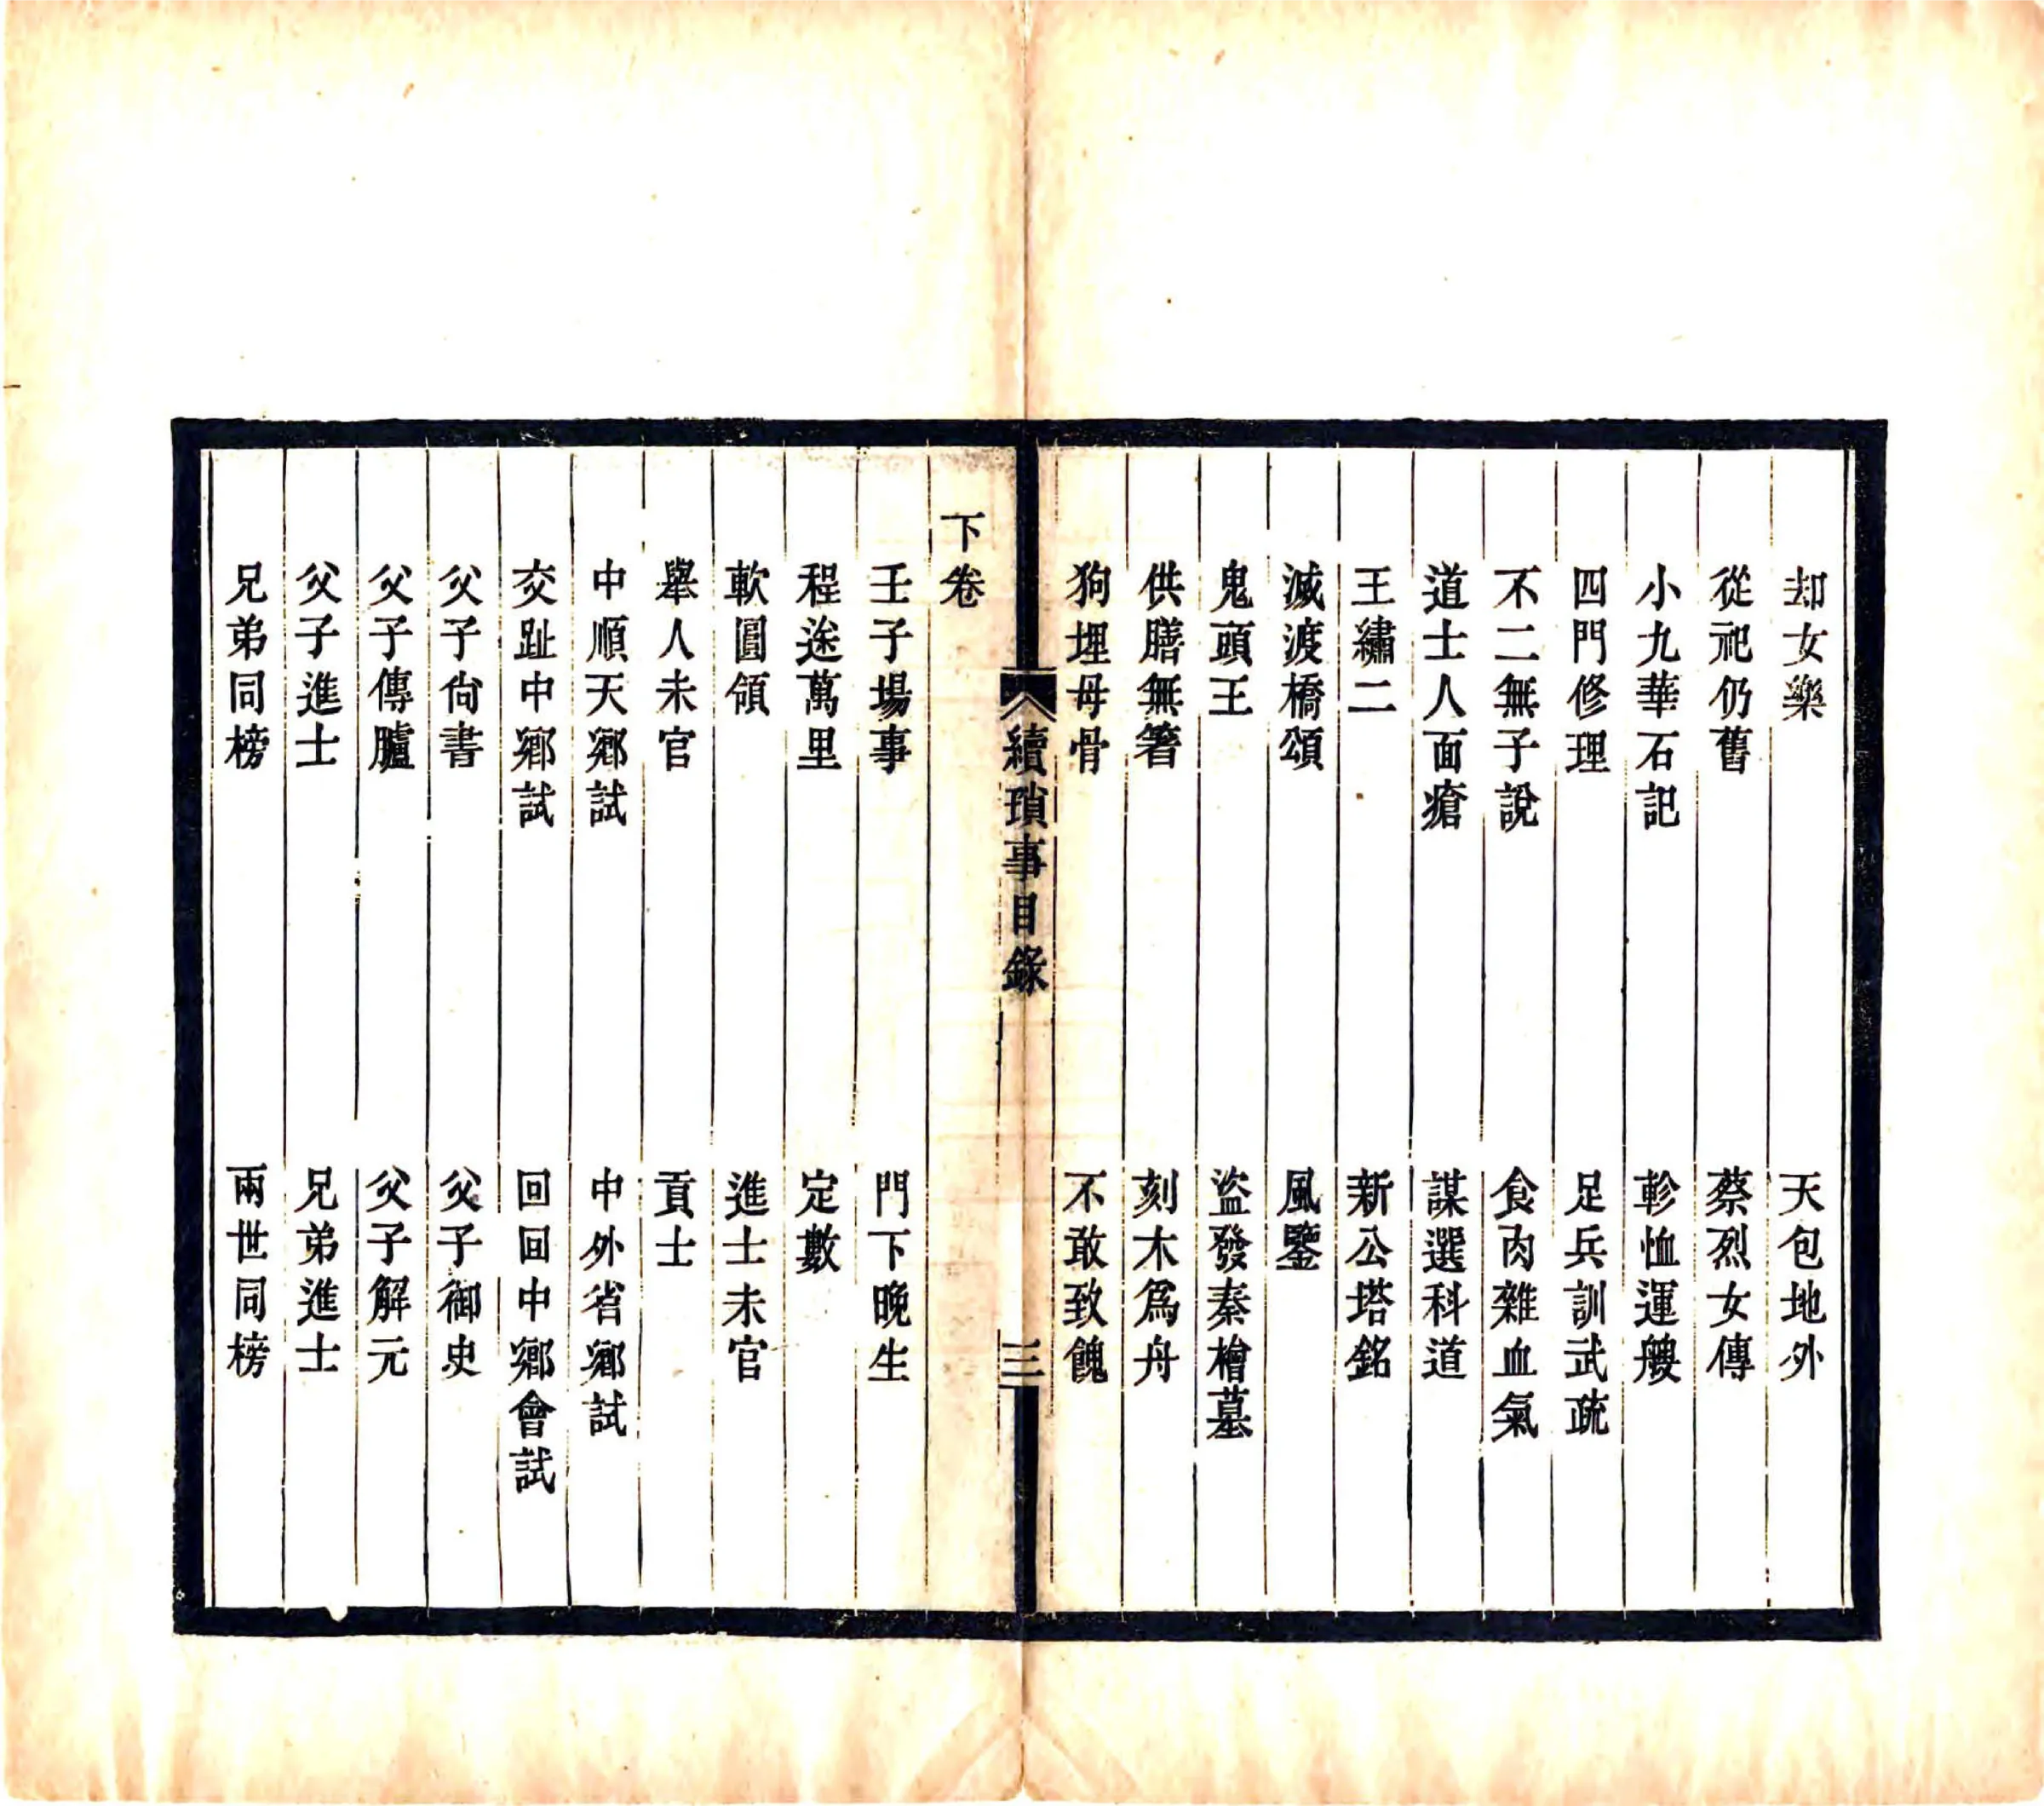 却女樂　天包地外
從祀仍舊　蔡烈女傳
小九華石記　軫恤運艘
四門修理　足兵訓武疏
不二無子說　食肉雜血氣
道士人面瘡　謀選科道
王繡二　新公塔銘
滅渡橋頌　風鑒
鬼頭王　盜發秦檜墓
供膳無箸　刻木爲舟
狗埋母骨　不敢致餽
續瑣事目錄　三
下卷
壬子場事　門下晚生
程送萬里　定數
軟圓領　進士未官
舉人未官　貢士
中順天鄉試　中外省鄉試
交趾中鄉試　回回中鄉會試
父子尙書　父子御史
父子傳臚　父子解元
父子進士　兄弟進士
兄弟同榜　兩世同榜